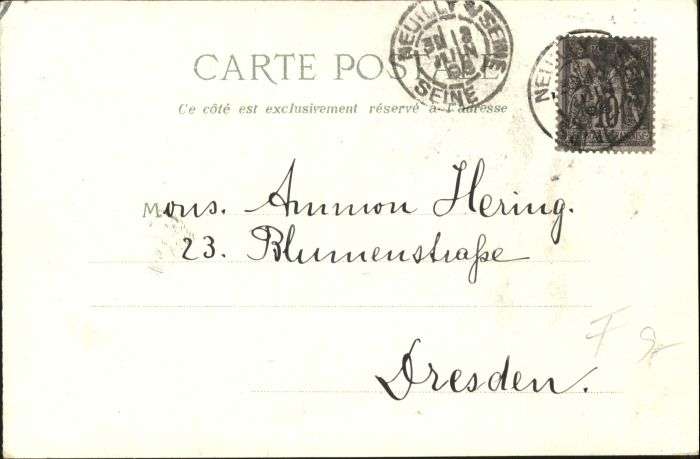 NEUILLY S/SEINE
13
JUIN
SEINE
CARTE POSTALE
Ce côté est exclusivement réservé à l'adresse
Mons. Ammon Hering.
23. Blumenstraße
Dresden.